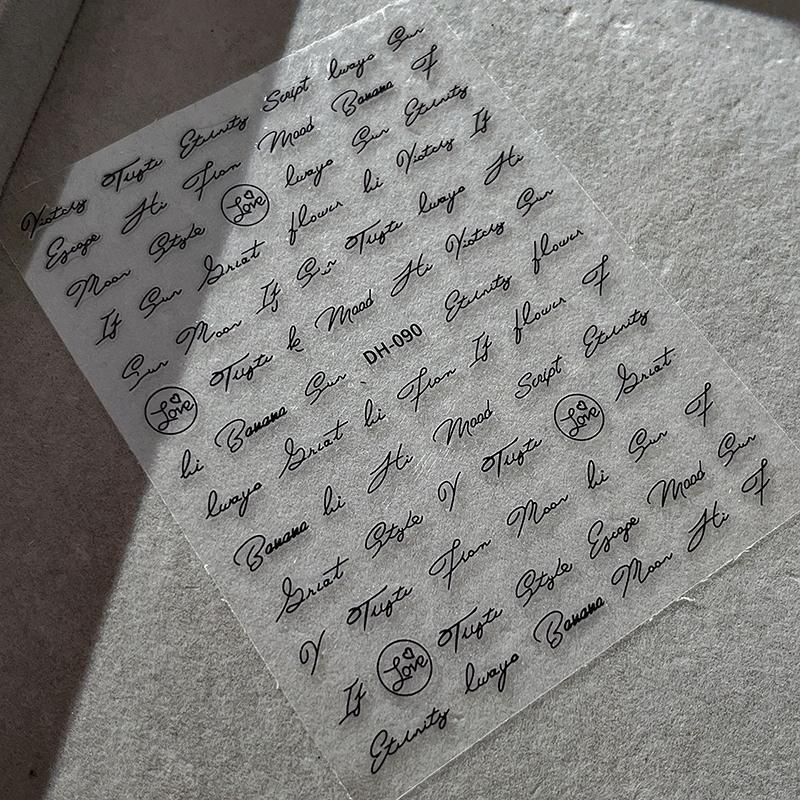 Victory Eternity Script lways Sun
Escape Hi From Mood Banana F
Moon Style Love lways Sun Eternity
If Sun Great flower hi Victory If
Sun Moon If Sun lways Hi
Love k Mood Hi Victory Sun
hi Banana Sun DH-090 Eternity flower
lways Great hi From If flower F
Banana hi Hi Mood Script Eternity
Great Style Y Love Great
Y From Moon hi Sun F
If Love Style Escape Mood Sun
Eternity lways Banana Moon Hi F